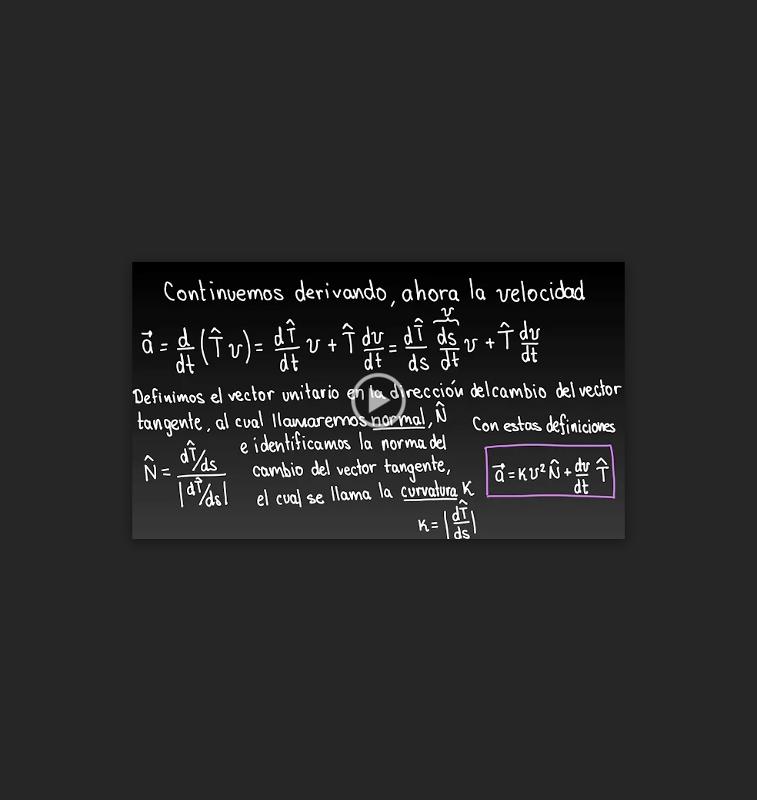 Continuemos derivando, ahora la velocidad
v
a⃗ = d/dt (T̂ v) = dT̂/dt v + T̂ dv/dt = dT̂/ds ds/dt v + T̂ dv/dt
Definimos el vector unitario en la dirección del cambio del vector
tangente, al cual llamaremos normal, N̂
e identificamos la norma del
cambio del vector tangente,
el cual se llama la curvatura K
N̂ = dT̂/ds / |dT̂/ds|
K = |dT̂/ds|
Con estas definiciones
a⃗ = K v² N̂ + dv/dt T̂